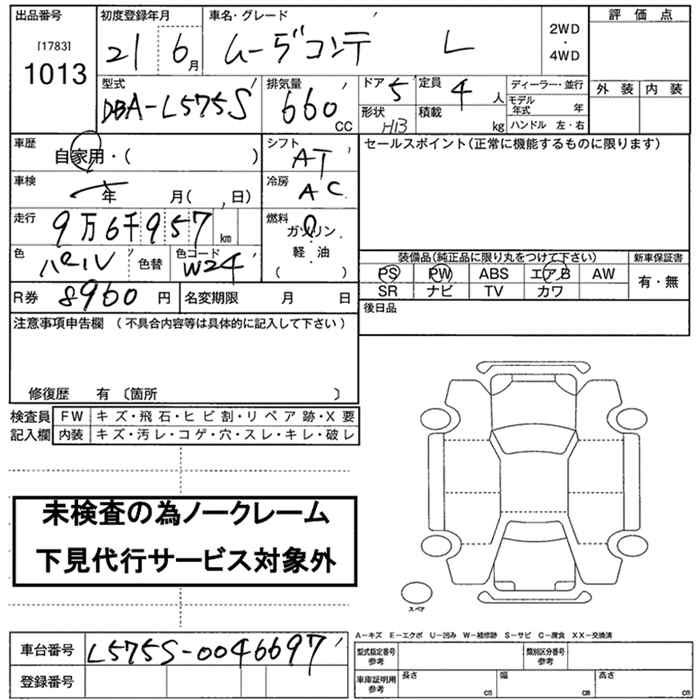 出品番号 初度登録年月 車名・グレード 評価点
[1783] 1013 21 6月 ムーヴコンテ L 2WD・4WD 外装 内装
型式 DBA-L575S 排気量 660cc ドア 5 形状 H13 定員 4人 積載 kg ディーラー・並行 モデル年式 年 ハンドル 左・右
車歴 自家用・( ) シフト AT セールスポイント(正常に機能するものに限ります)
車検 年 月( , 日) 冷房 AC
走行 9万6千957km 燃料 ガソリン・軽・油( )
色 パール 色替 色コード W24 装備品(純正品に限り丸をつけて下さい) 新車保証書
PS PW ABS エアB AW 有・無
SR ナビ TV カワ
R券 8960円 名変期限 月 日 後日品
注意事項申告欄 (不具合内容等は具体的に記入して下さい)
修復歴 有〔箇所 〕
検査員記入欄 FW キズ・飛石・ヒビ割・リペア跡・X要
内装 キズ・汚レ・コゲ・穴・スレ・キレ・破レ
未検査の為ノークレーム
下見代行サービス対象外
スペア
A-キズ E-エクボ U-凹み W-補修跡 S-サビ C-腐食 XX-交換済
車台番号 L575S-0046697 型式指定番号参考 類別区分番号参考
登録番号 車庫証明用参考 長さ cm 幅 cm 高さ cm